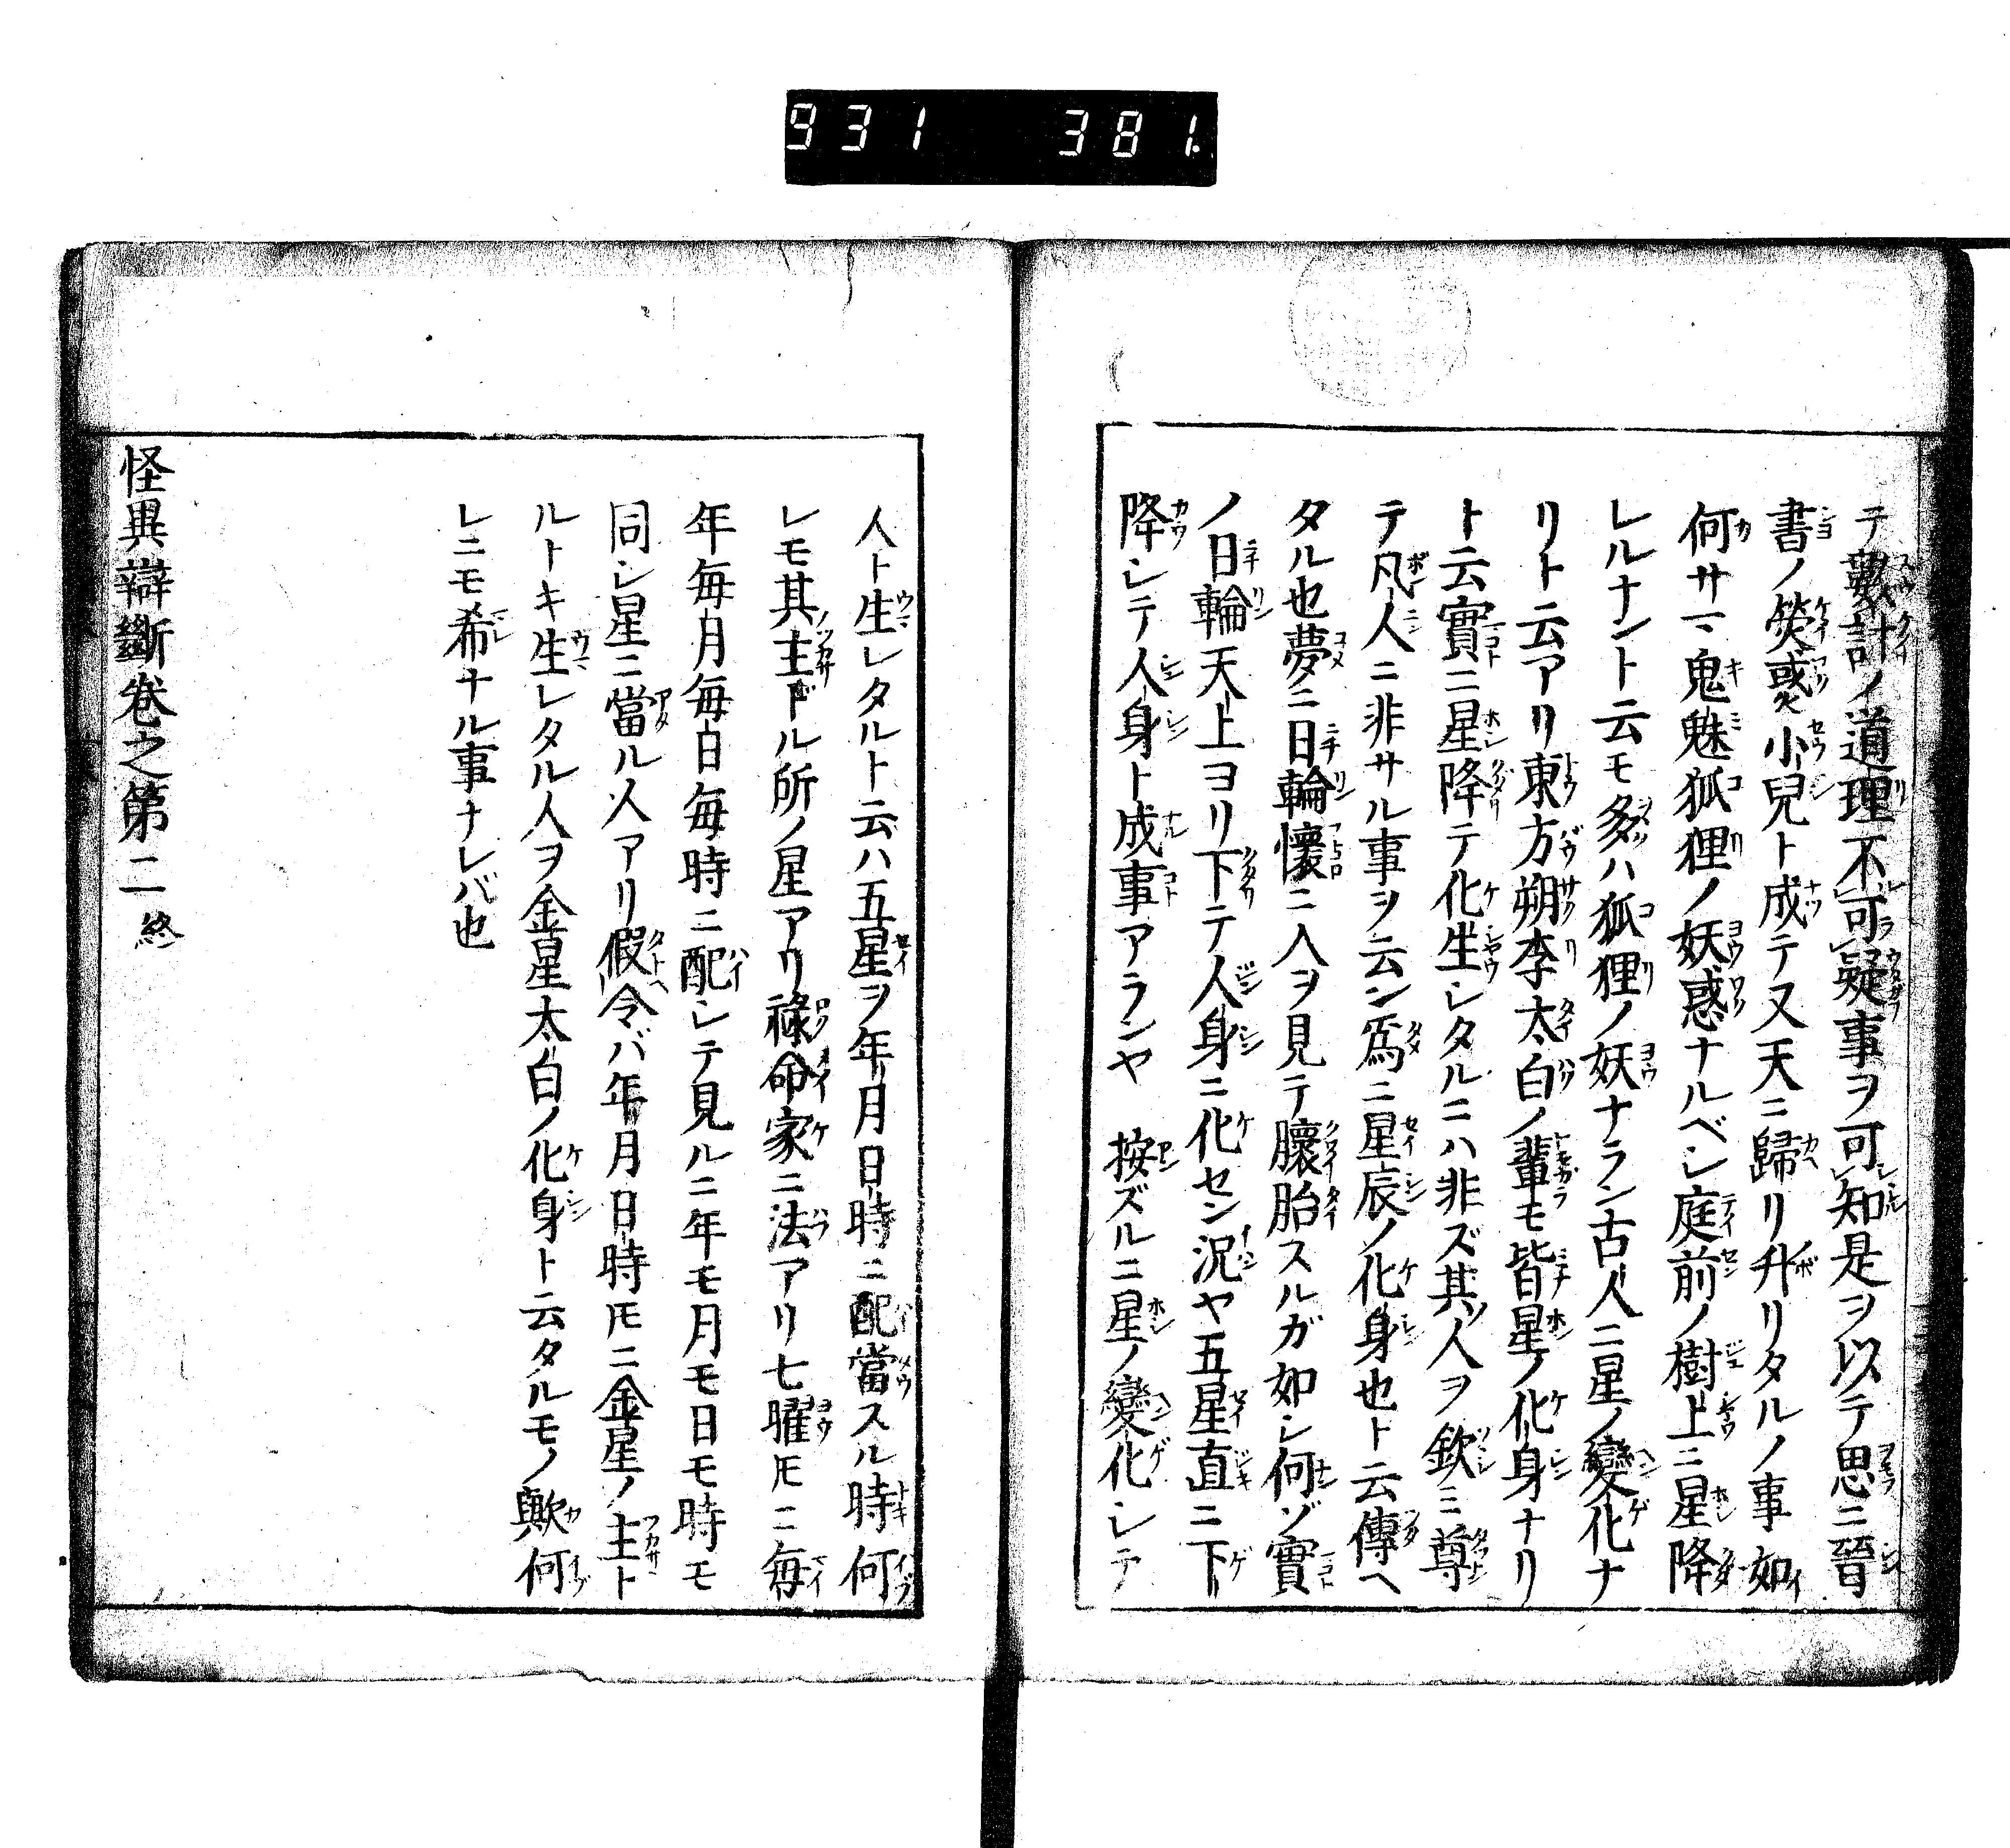 931 381
テ數計ノ道理不可疑事ヲ可知是ヲ以テ思ニ晉
書ノ熒惑小兒ト成テ又天ニ歸リ升リタルノ事如
何サマ鬼魅狐狸ノ妖惑ナルベシ庭前ノ樹上ニ星降
レルナント云モ多ハ狐狸ノ妖ナラン古人ニ星ノ變化ナ
リト云アリ東方朔李太白ノ輩モ皆星ノ化身ナリ
ト云實ニ星降テ化生シタルニハ非ズ其人ヲ欽ミ尊
テ凡人ニ非サル事ヲ云ン爲ニ星辰ノ化身也ト云傳ヘ
タル也夢ニ日輪懷ニ入ヲ見テ懷胎スルガ如シ何ゾ實
ノ日輪天上ヨリ下テ人身ニ化セン況ヤ五星直ニ下
降シテ人身ト成事アランヤ 按ズルニ星ノ變化シテ
人ト生レタルト云ハ五星ヲ年月日時ニ配當スル時何
レモ其主ドル所ノ星アリ祿命家ニ法アリ七曜ニ毎
年毎月毎日毎時ニ配シテ見ルニ年モ月モ日モ時モ
同シ星ニ當ル人アリ假令バ年月日時ニ金星ノ主ト
ルトキ生レタル人ヲ金星太白ノ化身ト云タルモノ歟何
レニモ希ナル事ナレバ也
怪異辯斷卷之第二終